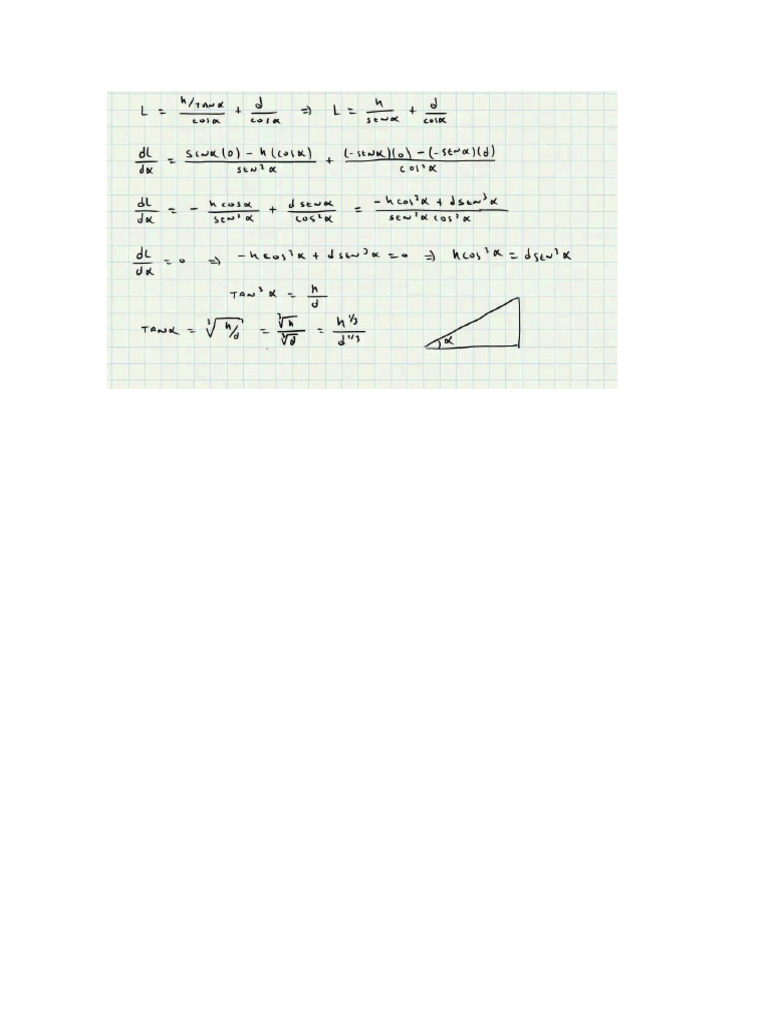 L = (h/TANα)/cosα + d/cosα ⇒ L = h/senα + d/cosα
dL/dα = (senα(0) − h(cosα))/sen²α + ((-senα)(0) − (-senα)(d))/cos²α
dL/dα = − h cosα/sen²α + d senα/cos²α = (−h cos³α + d sen³α)/(sen²α cos²α)
dL/dα = 0 ⇒ −h cos³α + d sen³α = 0 ⇒ h cos³α = d sen³α
TAN³α = h/d
TANα = ∛(h/d) = ∛h/∛d = h^1/3/d^1/3
α